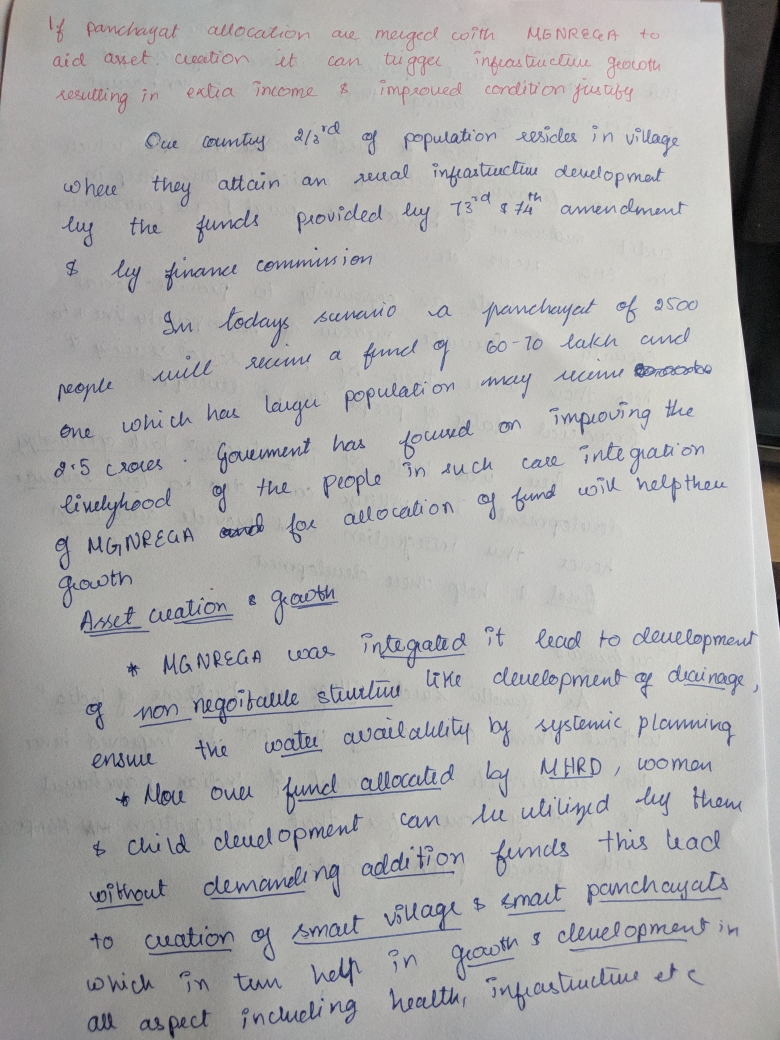 If panchayat allocation are merged with MGNREGA to
aid asset creation it can trigger infrastructure growth
resulting in extra income & improved condition justify
Our country 2/3rd of population resides in village
where they attain an rural infrastructure development
by the funds provided by 73rd & 74th amendment
& by finance commission
In todays scenario a panchayat of 2500
people will receive a fund of 60-70 lakh and
one which has larger population may receive
2.5 crores. Government has focused on improving the
livelyhood of the people in such case integration
of MGNREGA for allocation of fund will help their
growth
Asset creation & growth
* MGNREGA was integrated it lead to development
of non negoitable structure like development of drainage,
ensure the water availability by systemic planning
* More over fund allocated by MHRD, women
& child development can be utilized by them
without demanding addition funds this lead
to creation of smart village & smart panchayats
which in turn help in growth & development in
all aspect including health, infrastructure etc